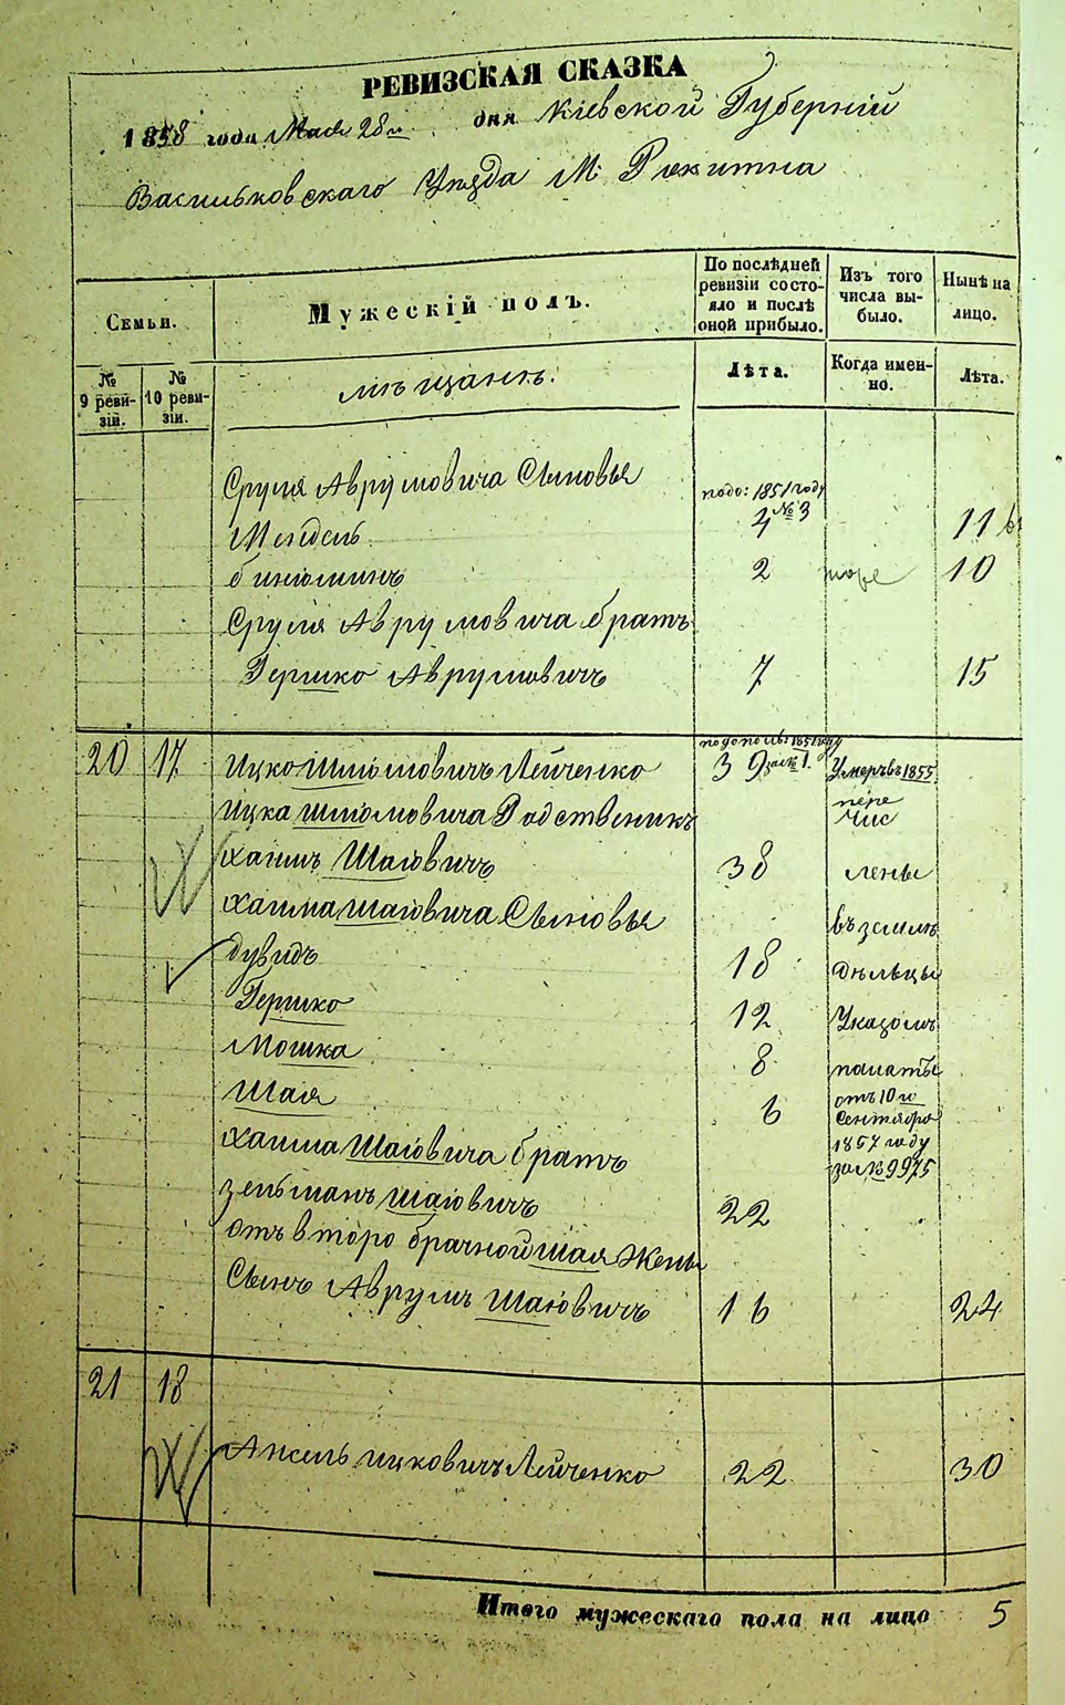 РЕВИЗСКАЯ СКАЗКА
1858 года Мая 28го дня Кіевской Губерніи
Васильковскаго Уѣзда М. Рокитна
Семьи.
Мужескій полъ.
По послѣдней ревизіи состояло и послѣ оной прибыло.
Изъ того числа выбыло.
Нынѣ на лицо.
№ 9 ревизіи.
№ 10 ревизіи.
мѣщанѣ.
Лѣта.
Когда именно.
Лѣта.
Сруля Аврумовича Сыновья
подо: 1851 году
Мендель 4 №3 11
биніоминъ 2 10
Сруля Аврумовича братъ
Гершко Аврумовичъ 7 15
1851 году
20 17 Ицко Шліомовичъ Лейченко 39 за № 1. Умеръ въ 1855
Ицка Шліомовича Родственикъ пере
чис
Хаимъ Шаіовичъ 38 лены
Хаима Шаіовича Сыновья въ земле
дувидъ 18 дѣльцы
Гершко 12 Указомъ
Мошка 8 палаты
Шая 6 отъ 10го
Сентября
Хаима Шаіовича братъ 1857 году
за № 9975
Зельманъ Шаіовичъ 22
отъ второ брачной Шая Жены
Сынъ Аврумъ Шаіовичъ 16 24
21 18
Анкель ицковичъ Лейченко 22 30
Итого мужескаго пола на лицо 5